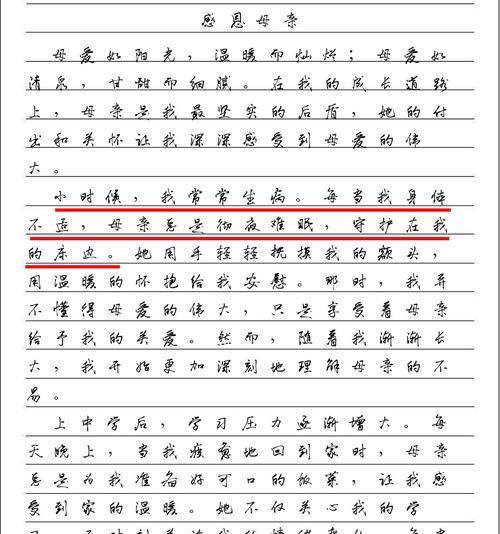 感恩母亲
母爱如阳光，温暖而灿烂；母爱如
清泉，甘甜而细腻。在我的成长道路
上，母亲是我最坚实的后盾，她的付
出和关怀让我深深感受到母爱的伟
大。
小时候，我常常生病。每当我身体
不适，母亲总是彻夜难眠，守护在我
的床边。她用手轻轻抚摸我的额头，
用温暖的怀抱给我安慰。那时，我并
不懂得母爱的伟大，只是享受着母亲
给予我的关爱。然而，随着我渐渐长
大，我开始更加深刻地理解母亲的不
易。
上中学后，学习压力逐渐增大。每
天晚上，当我疲惫地回到家时，母亲
总是为我准备好可口的饭菜，让我感
受到家的温暖。她不仅关心我的学